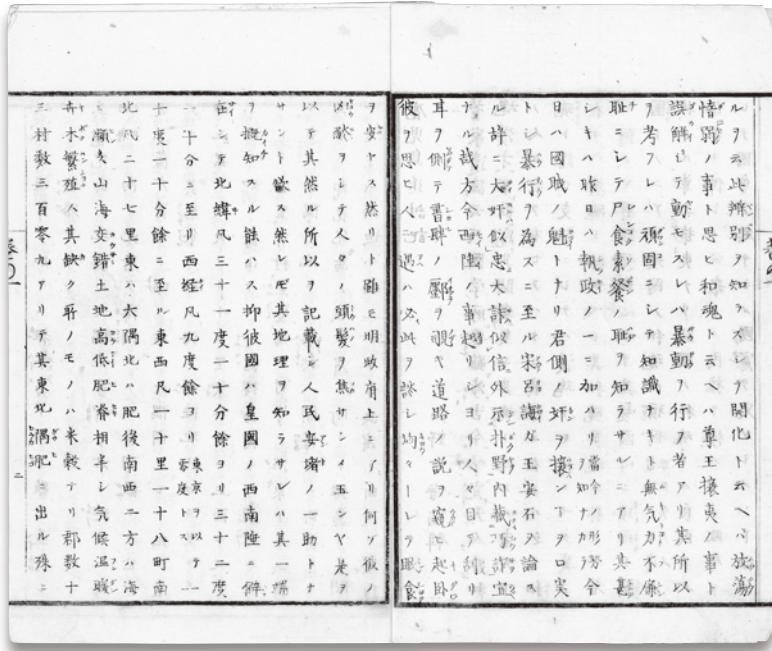 ルヲ云此辨別ヲ知ラスシテ開化ト云ヘハ放蕩
惰弱ノ事ト思ヒ和魂ト云ヘハ尊王攘夷ノ事ト
誤解シテ動モスレハ暴動ヲ行フ者アリ其所以
ヲ考フレハ頑固ニシテ知識ナキト無気力不廉
恥ニシテ尸食素餐ノ恥ヲ知ラサレニアリ其甚
シキハ昨日ハ執政ノ一ニ加ハリ當今ノ形勢ヲ知ナカラ今
日ハ國賊ノ魁トナリ君側ノ奸ヲ攘ンヿヲ口実
トシ暴行ヲ為スニ至ル宋呂誨カ王安石ヲ論ス
ル辞ニ大奸似忠大詐似信外示朴野内蔵巧詐宜
ナル哉方今西陲ノ事起リシヨリ人々目ヲ
耳ヲ側テ書肆ノ ヲ覗キ道路ノ説ヲ窺ヒ起臥
彼ヲ思ヒ人ニ遇ハ必此ヲ談シ均々シレヲ眠食
ヲ安ヤス然リト雖モ明政府上ニアリ何ソ彼ノ
ヲシテ人々ノ頭髪ヲ焦サシメ玉ンヤ是ヲ
以テ其然ル所以ヲ記載シ人民安堵ノ一助トナ
サント欲ス然レ𪜈其地理ヲ知ラサレハ其一端
ヲ擬知スル能ハス抑彼國ハ皇國ノ西南陲ニ僻
在シテ北緯凡三十一度一十分餘ヨリ三十二度
一十分ニ至リ西経凡九度餘ヨリ東京ヲ以テ零度トス一
十度一十分餘ニ至ル東西凡一十里一十八町南
北凡二十七里東ハ大隅北ハ肥後南西二方ハ海
ニ瀕ス山海交錯土地高低肥瘠相半シ気候温暖
卉木繁殖ス其缺ク所ノモノハ米穀テリ郡数十
三村数三百零九アリテ其東北隅肥ニ出ル殊ニ
巻ノ一
二